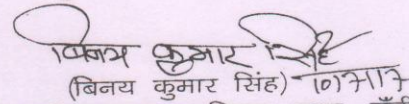 बिनय कुमार सिंह
(बिनय कुमार सिंह) 10/7/17